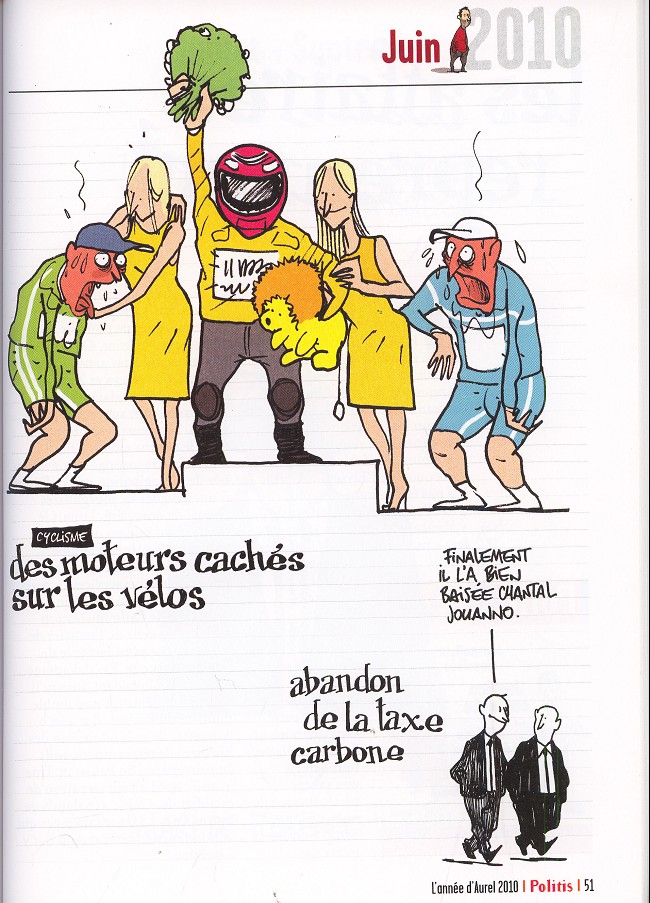 Juin 2010
CYCLISME
des moteurs cachés
sur les vélos
FINALEMENT
IL L'A BIEN
BAISÉE CHANTAL
JOUANNO.
abandon
de la taxe
carbone
L'année d'Aurel 2010 | Politis | 51